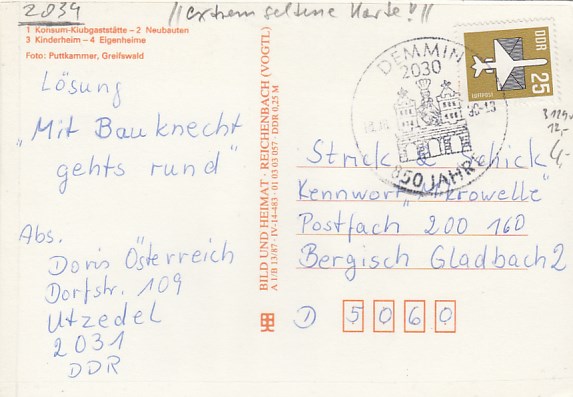 2034 //extrem seltene Karte!//
1 Konsum-Klubgaststätte – 2 Neubauten
3 Kinderheim – 4 Eigenheime
Foto: Puttkammer, Greifswald
Lösung
"Mit Bauknecht
gehts rund"
Abs.
Doris Österreich
Dorfstr. 109
Utzedel
2031
DDR
BILD UND HEIMAT · REICHENBACH (VOGTL)
A 1/B 13/87 · IV-14-483 · 01 03 03 057 · DDR 0,25 M
DEMMIN
2030
850 JAHRE
DDR
25
LUFTPOST
12,-
4,-
Strick & Schick
Kennwort "Mikrowelle"
Postfach 200 160
Bergisch Gladbach 2
D 5060